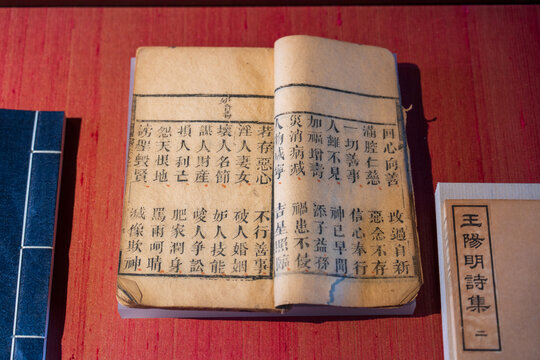 回心向善 改過自新
滿腔仁慈 惡念不存
一切善事 信心奉行
人雖不見 神已早聞
加福增壽 添子益孫
災消病減 禍患不侵
人物咸寧 吉星照臨
若存惡心 不行善事
淫人妻女 破人婚姻
壞人名節 妒人技能
謀人財產 唆人爭訟
損人利己 肥家潤身
怨天恨地 罵雨呵晴
謗聖毀賢 滅像欺神
王陽明詩集 二